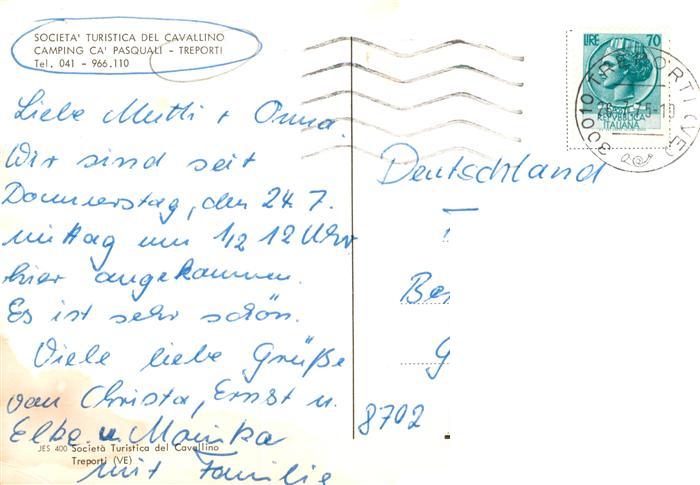 SOCIETA' TURISTICA DEL CAVALLINO
CAMPING CA' PASQUALI - TREPORTI
Tel. 041 - 966.110
Liebe Mutti + Omma.
Wir sind seit
Donnerstag, den 24.7.
mittag um 1/2 12 Uhr
hier angekommen.
Es ist sehr schön.
Viele liebe Grüße
von Christa, Ernst u.
Elke u. Monika
mit Familie
JES 400 Società Turistica del Cavallino
Treporti (VE)
LIRE 70
REPVBBLICA
ITALIANA
30010 TREPORTI (VE)
Deutschland
8702